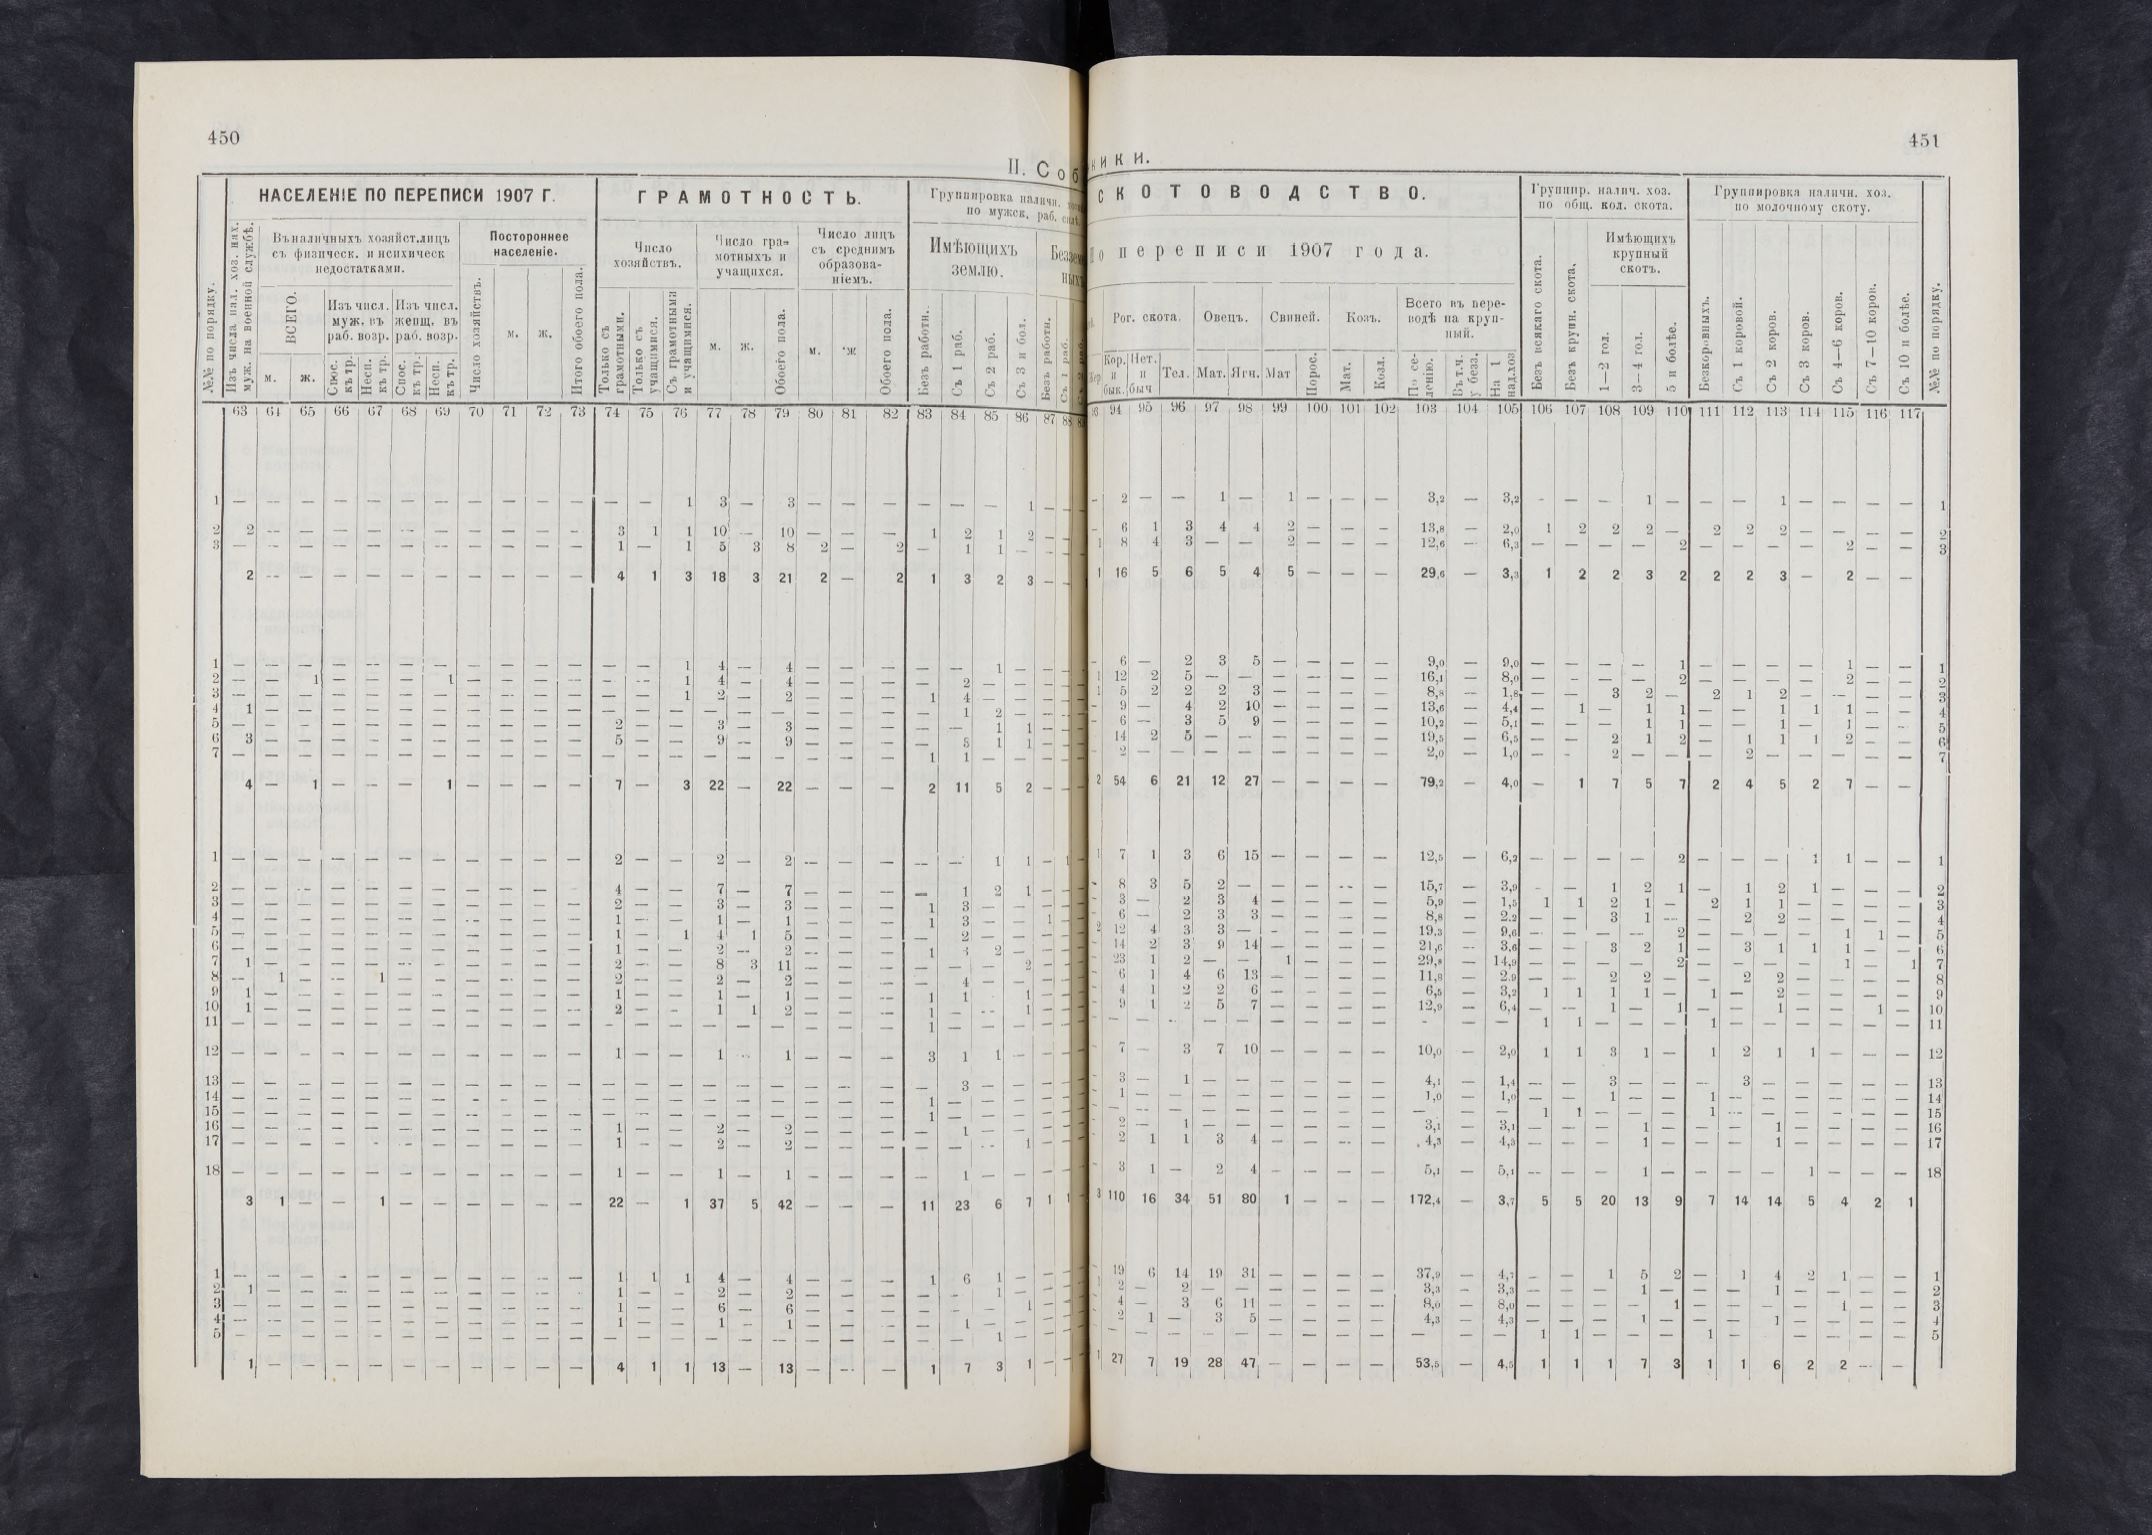 450
II. Соб
НАСЕЛЕНІЕ ПО ПЕРЕПИСИ 1907 Г.
ГРАМОТНОСТЬ.
Группировка наличн.
по мужск. раб.
№№ по порядку.
Изъ числа нал. хоз. нах.
муж. на военной службѣ.
Въ наличныхъ хозяйст. лицъ
съ физическ. и психическ
недостатками.
Постороннее
населеніе.
Число
хозяйствъ.
Число гра-
мотныхъ и
учащихся.
Число лицъ
съ среднимъ
образова-
ніемъ.
Имѣющихъ
землю.
ВСЕГО.
Изъ числ.
муж. въ
раб. возр.
Изъ числ.
женщ. въ
раб. возр.
м. ж.
Спос. къ тр.
Несп. къ тр.
Спос. къ тр.
Несп. къ тр.
Число хозяйствъ.
м. ж.
Итого обоего пола.
Только съ грамотными.
Только съ учащимися.
Съ грамотными и учащимися.
м. ж.
Обоего пола.
м. ж
Обоего пола.
Безъ работн.
Съ 1 раб.
Съ 2 раб.
Съ 3 и бол.
Безъ работн.
Съ 1 раб.
63 64 65 66 67 68 69 70 71 72 73 74 75 76 77 78 79 80 81 82 83 84 85 86 87 88
1 — — — — — — — — — — — — — 1 3 — 3 — — — — — — 1 —
2 2 — — — — — — — — — — 3 1 1 10 — 10 — — — 1 2 1 2 — —
3 — — — — — — — — — — — 1 — 1 5 3 8 2 — 2 — 1 1 — — —
2 — — — — — — — — — — 4 1 3 18 3 21 2 — 2 1 3 2 3 — —
1 — — — — — — — — — — — — — 1 4 — 4 — — — — — 1 — — —
2 — — 1 — — — 1 — — — — — — 1 4 — 4 — — — — 2 — — — —
3 — — — — — — — — — — — — — 1 2 — 2 — — — 1 4 — — — —
4 1 — — — — — — — — — — — — — — — — — — — — 1 2 — — —
5 — — — — — — — — — — — 2 — — 3 — 3 — — — — — 1 1 — —
6 3 — — — — — — — — — — 5 — — 9 — 9 — — — — 5 1 1 — —
7 — — — — — — — — — — — — — — — — — — — — 1 1 — — — —
4 — 1 — — — 1 — — — — 7 — 3 22 — 22 — — — 2 11 5 2 — —
1 — — — — — — — — — — — 2 — — 2 — 2 — — — — — 1 1 — 1
2 — — — — — — — — — — — 4 — — 7 — 7 — — — — 1 2 1 — —
3 — — — — — — — — — — — 2 — — 3 — 3 — — — 1 3 — — — —
4 — — — — — — — — — — — 1 — — 1 — 1 — — — 1 3 — — 1 —
5 — — — — — — — — — — — 1 — 1 4 1 5 — — — — 2 — — — —
6 — — — — — — — — — — — 1 — — 2 — 2 — — — 1 3 2 — — —
7 1 — — — — — — — — — — 2 — — 8 3 11 — — — — — — 2 — —
8 — 1 — — 1 — — — — — — 2 — — 2 — 2 — — — — 4 — — — —
9 1 — — — — — — — — — — 1 — — 1 — 1 — — — 1 1 1 — —
10 1 — — — — — — — — — — 2 — — 1 1 2 — — — 1 — — 1 — —
11 — — — — — — — — — — — — — — — — — — — — 1 — — — — —
12 — — — — — — — — — — — 1 — — 1 — 1 — — — 3 1 1 — — —
13 — — — — — — — — — — — — — — — — — — — — — 3 — — — —
14 — — — — — — — — — — — — — — — — — — — — 1 — — — — —
15 — — — — — — — — — — — — — — — — — — — — 1 — — — — —
16 — — — — — — — — — — — 1 — — 2 — 2 — — — — 1 — — — —
17 — — — — — — — — — — — 1 — — 2 — 2 — — — — — — 1 — —
18 — — — — — — — — — — — 1 — — 1 — 1 — — — — 1 — — — —
3 1 — — 1 — — — — — — 22 — 1 37 5 42 — — — 11 23 6 7 1 1
1 — — — — — — — — — — — 1 1 1 4 — 4 — — — 1 6 1 — — —
2 1 — — — — — — — — — — 1 — — 2 — 2 — — — — — 1 — — —
3 — — — — — — — — — — — 1 — — 6 — 6 — — — — — — 1 — —
4 — — — — — — — — — — — 1 — — 1 — 1 — — — — 1 — — — —
5 — — — — — — — — — — — — — — — — — — — — — — 1 — — —
1 — — — — — — — — — — 4 1 1 13 — 13 — — — 1 7 3 1 — —
451
ики.
СКОТОВОДСТВО.
Группир. налич. хоз.
по общ. кол. скота.
Группировка наличн. хоз.
по молочному скоту.
По переписи 1907 года.
Имѣющихъ
крупный
скотъ.
Рог. скота. Овецъ. Свиней. Козъ.
Всего въ пере-
водѣ на круп-
ный.
Кор. и бык.
Нет. и быч
Тел. Мат. Ягн. Мат
Порос.
Мат.
Козл.
По се-
ленію.
Въ т.ч.
у безз.
На 1
над.хоз
Безъ всякаго скота.
Безъ крупн. скота.
1—2 гол.
3—4 гол.
5 и болѣе.
Безкоровныхъ.
Съ 1 коровой.
Съ 2 коров.
Съ 3 коров.
Съ 4—6 коров.
Съ 7—10 коров.
Съ 10 и болѣе.
№№ по порядку.
94 95 96 97 98 99 100 101 102 103 104 105 106 107 108 109 110 111 112 113 114 115 116 117
- 2 — — 1 — 1 — — — 3,2 — 3,2 - — — 1 — — — 1 — — — — 1
- 6 1 3 4 4 2 — — — 13,8 — 2,0 1 2 2 2 — 2 2 2 — — — — 2
1 8 4 3 — — 2 — — — 12,6 — 6,3 — — — — 2 — — — — 2 — — 3
1 16 5 6 5 4 5 — — — 29,6 — 3,3 1 2 2 3 2 2 2 3 — 2 — —
- 6 — 2 3 5 — — — — 9,0 — 9,0 — — — — 1 — — — — 1 — — 1
1 12 2 5 — — — — — — 16,1 — 8,0 — — — — 2 — — — — 2 — — 2
1 5 2 2 2 3 — — — — 8,8 — 1,8 — — 3 2 — 2 1 2 — — — — 3
- 9 — 4 2 10 — — — — 13,6 — 4,4 — 1 — 1 1 — — 1 1 1 — — 4
- 6 — 3 5 9 — — — — 10,2 — 5,1 — — — 1 1 — — 1 — 1 — — 5
14 2 5 — — — — — — 19,5 — 6,5 — — 2 1 2 — 1 1 1 2 — — 6
- 2 — — — — — — — — 2,0 — 1,0 — — 2 — — — 2 — — — — — 7
2 54 6 21 12 27 — — — — 79,2 — 4,0 — 1 7 5 7 2 4 5 2 7 — —
1 7 1 3 6 15 — — — — 12,5 — 6,2 — — — — 2 — — — 1 1 — — 1
- 8 3 5 2 — — — — — 15,7 — 3,9 - — 1 2 1 — 1 2 1 — — — 2
- 3 — 2 3 4 — — — — 5,9 — 1,5 1 1 2 1 — 2 1 1 — — — — 3
- 6 — 2 3 3 — — — — 8,8 — 2,2 — — 3 1 — — 2 2 — — — — 4
2 12 4 3 3 — — — — — 19,3 — 9,6 — — — — 2 — — — — 1 1 — 5
- 14 2 3 9 14 — — — — 21,6 — 3,6 — — 3 2 1 — 3 1 1 1 — — 6
- 23 1 2 — — 1 — — — 29,8 — 14,9 — — — — 2 — — — — 1 — 1 7
- 6 1 4 6 13 — — — — 11,8 — 2,9 — — 2 2 — — 2 2 — — — — 8
- 4 1 2 2 6 — — — — 6,5 — 3,2 1 1 1 1 — 1 — 2 — — — — 9
- 9 1 2 5 7 — — — — 12,9 — 6,4 — — 1 — 1 — — 1 — — 1 — 10
- — — — — — — — — — - — — 1 1 — — — 1 — — — — — — 11
- 7 — 3 7 10 — — — — 10,0 — 2,0 1 1 3 1 — 1 2 1 1 — — — 12
- 3 — 1 — — — — — — 4,1 — 1,4 — — 3 — — — 3 — — — — — 13
- 1 — — — — — — — — 1,0 — 1,0 — — 1 — — 1 — — — — — — 14
- — — — — — — — — — — — — 1 1 — — — 1 — — — — — — 15
- 2 — 1 — — — — — — 3,1 — 3,1 — — — 1 — — — 1 — — — — 16
- 2 1 1 3 4 — — — — 4,3 — 4,3 — — — 1 — — — 1 — — — — 17
- 3 1 — 2 4 — — — — 5,1 — 5,1 — — — 1 — — — — 1 — — — 18
3 110 16 34 51 80 1 — — — 172,4 — 3,7 5 5 20 13 9 7 14 14 5 4 2 1
- 19 6 14 19 31 — — — — 37,9 — 4,7 — — 1 5 2 — 1 4 2 1 — — 1
1 2 — 2 — — — — — — 3,3 — 3,3 — — — 1 — — — 1 — — — — 2
- 4 — 3 6 11 — — — — 8,0 — 8,0 — — — — 1 — — — — 1 — — 3
- 2 1 — 3 5 — — — — 4,3 — 4,3 — — — 1 — — — 1 — — — — 4
- — — — — — — — — — — — — 1 1 — — — 1 — — — — — 5
1 27 7 19 28 47 — — — — 53,5 — 4,5 1 1 1 7 3 1 1 6 2 2 — —